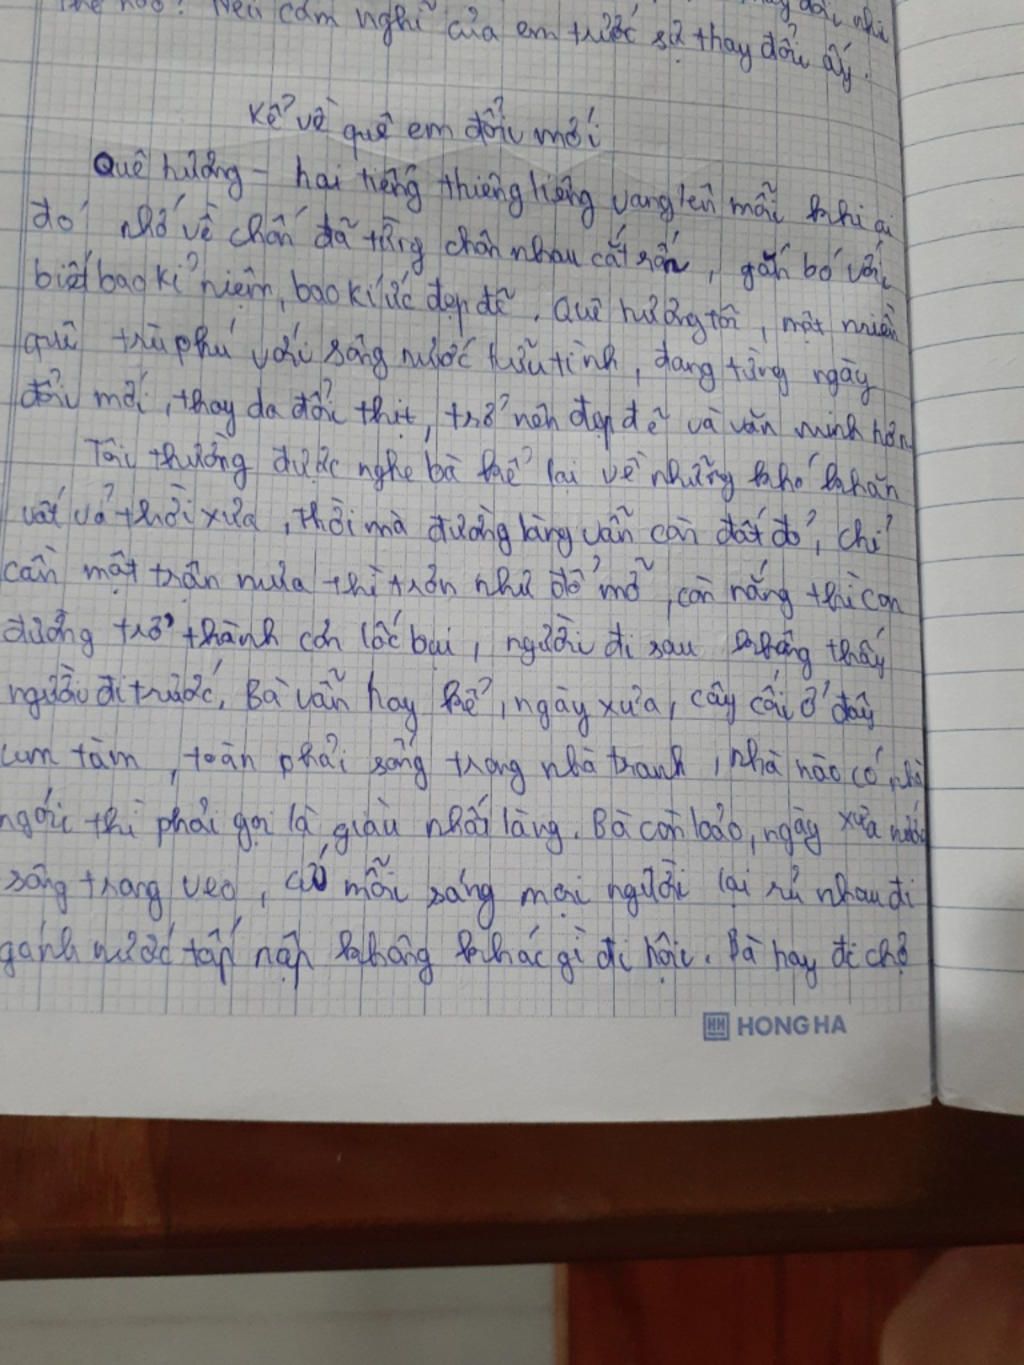 thay đổi như
thế nào? Nêu cảm nghĩ của em trước sự thay đổi ấy.
Kể về quê em đổi mới
Quê hương - hai tiếng thiêng liêng vang lên mỗi khi ai
đó nhớ về chốn đã từng chôn nhau cắt rốn, gắn bó với
biết bao kỉ niệm, bao kí ức đẹp đẽ. Quê hương tôi, một miền
quê trù phú với sông nước hữu tình, đang từng ngày
đổi mới, thay da đổi thịt, trở nên đẹp đẽ và văn minh hơn.
Tôi thường được nghe bà kể lại về những khó khăn
vất vả thời xưa, thời mà đường làng vẫn còn đất đỏ, chỉ
cần một trận mưa thì trơn như đổ mỡ, còn nắng thì con
đường trở thành cơn lốc bụi, người đi sau không thấy
người đi trước. Bà vẫn hay kể, ngày xưa, cây cối ở đây
um tùm, toàn phải sống trong nhà tranh, nhà nào có nhà
ngói thì phải gọi là giàu nhất làng. Bà còn bảo, ngày xưa nước
sông trong veo, cứ mỗi sáng mọi người lại rủ nhau đi
gánh nước tấp nập không khác gì đi hội. Bà hay đi chợ
HONG HA